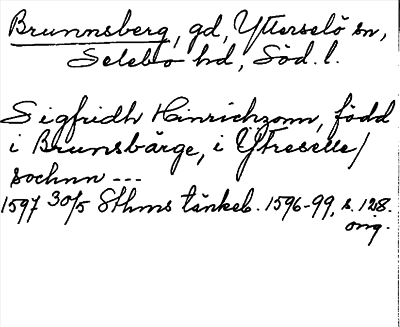 Brunnsberg, gd, Ytterselö sn,
Selebo hd, Söd. l.
Sigfridh Hinrichzonn, född
i Brunsbärge, i Ytreselle/
sochnn ---
1597 30/5 Sthms tänkeb. 1596-99, s. 128.
orig.